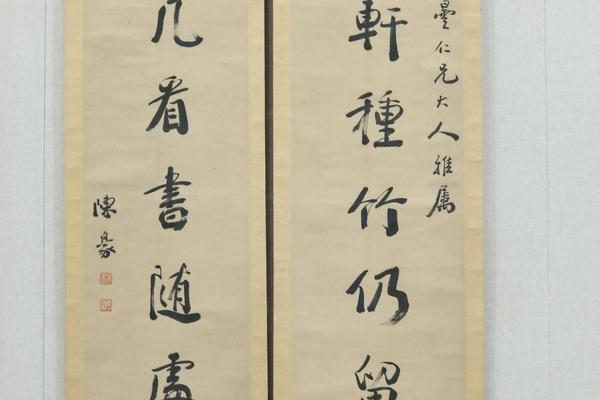 曇仁兄大人雅屬
軒種竹仍留
几看書随處
陳豪